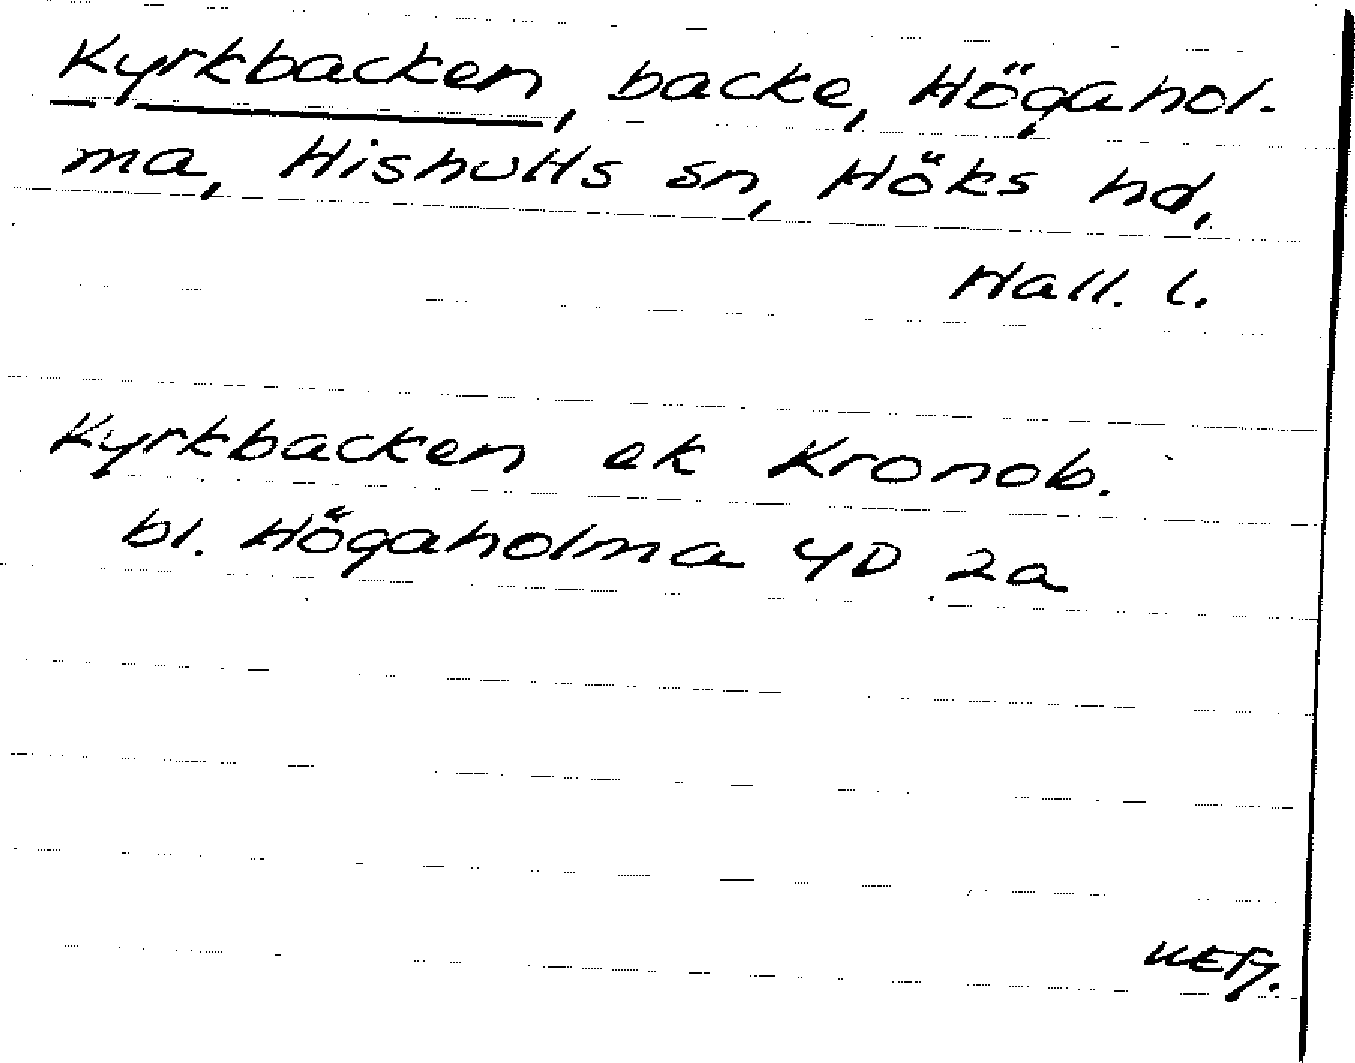 Kyrkbacken, backe, Högahol-
ma, Hishults sn, Höks hd,
Hall. l.
Kyrkbacken ek Kronob.
bl. Högaholma 4D 2a